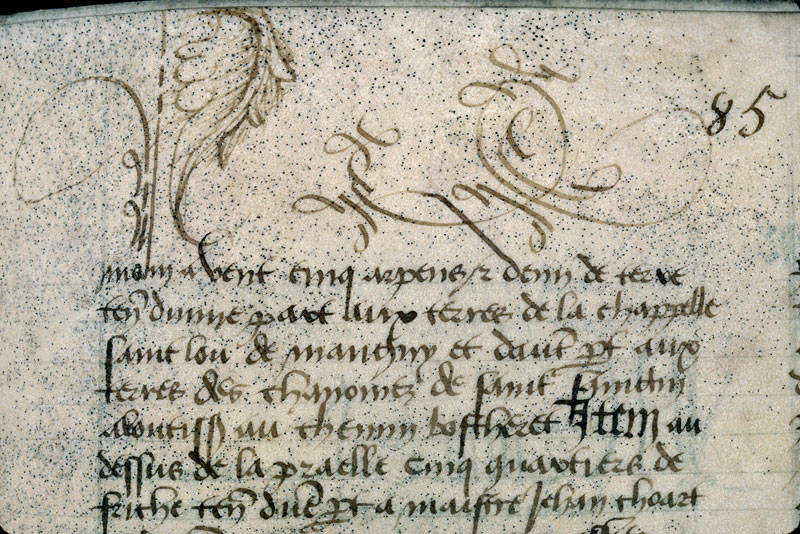 85
a vent cinq arpens et demi de terre
ten d'une part aux terres de la chappelle
saint lou de et daut pt aux
terres des chanoines de saint
aboutiss au chemin Item au
dessus de la praelle cinq quartiers de
friche ten dune pt a maistre Jehan choart